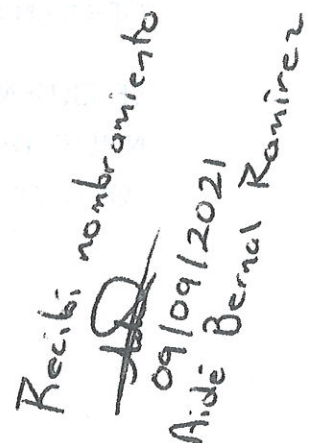 Recibi nombramiento
09/09/2021
Aidé Bernal Ramírez